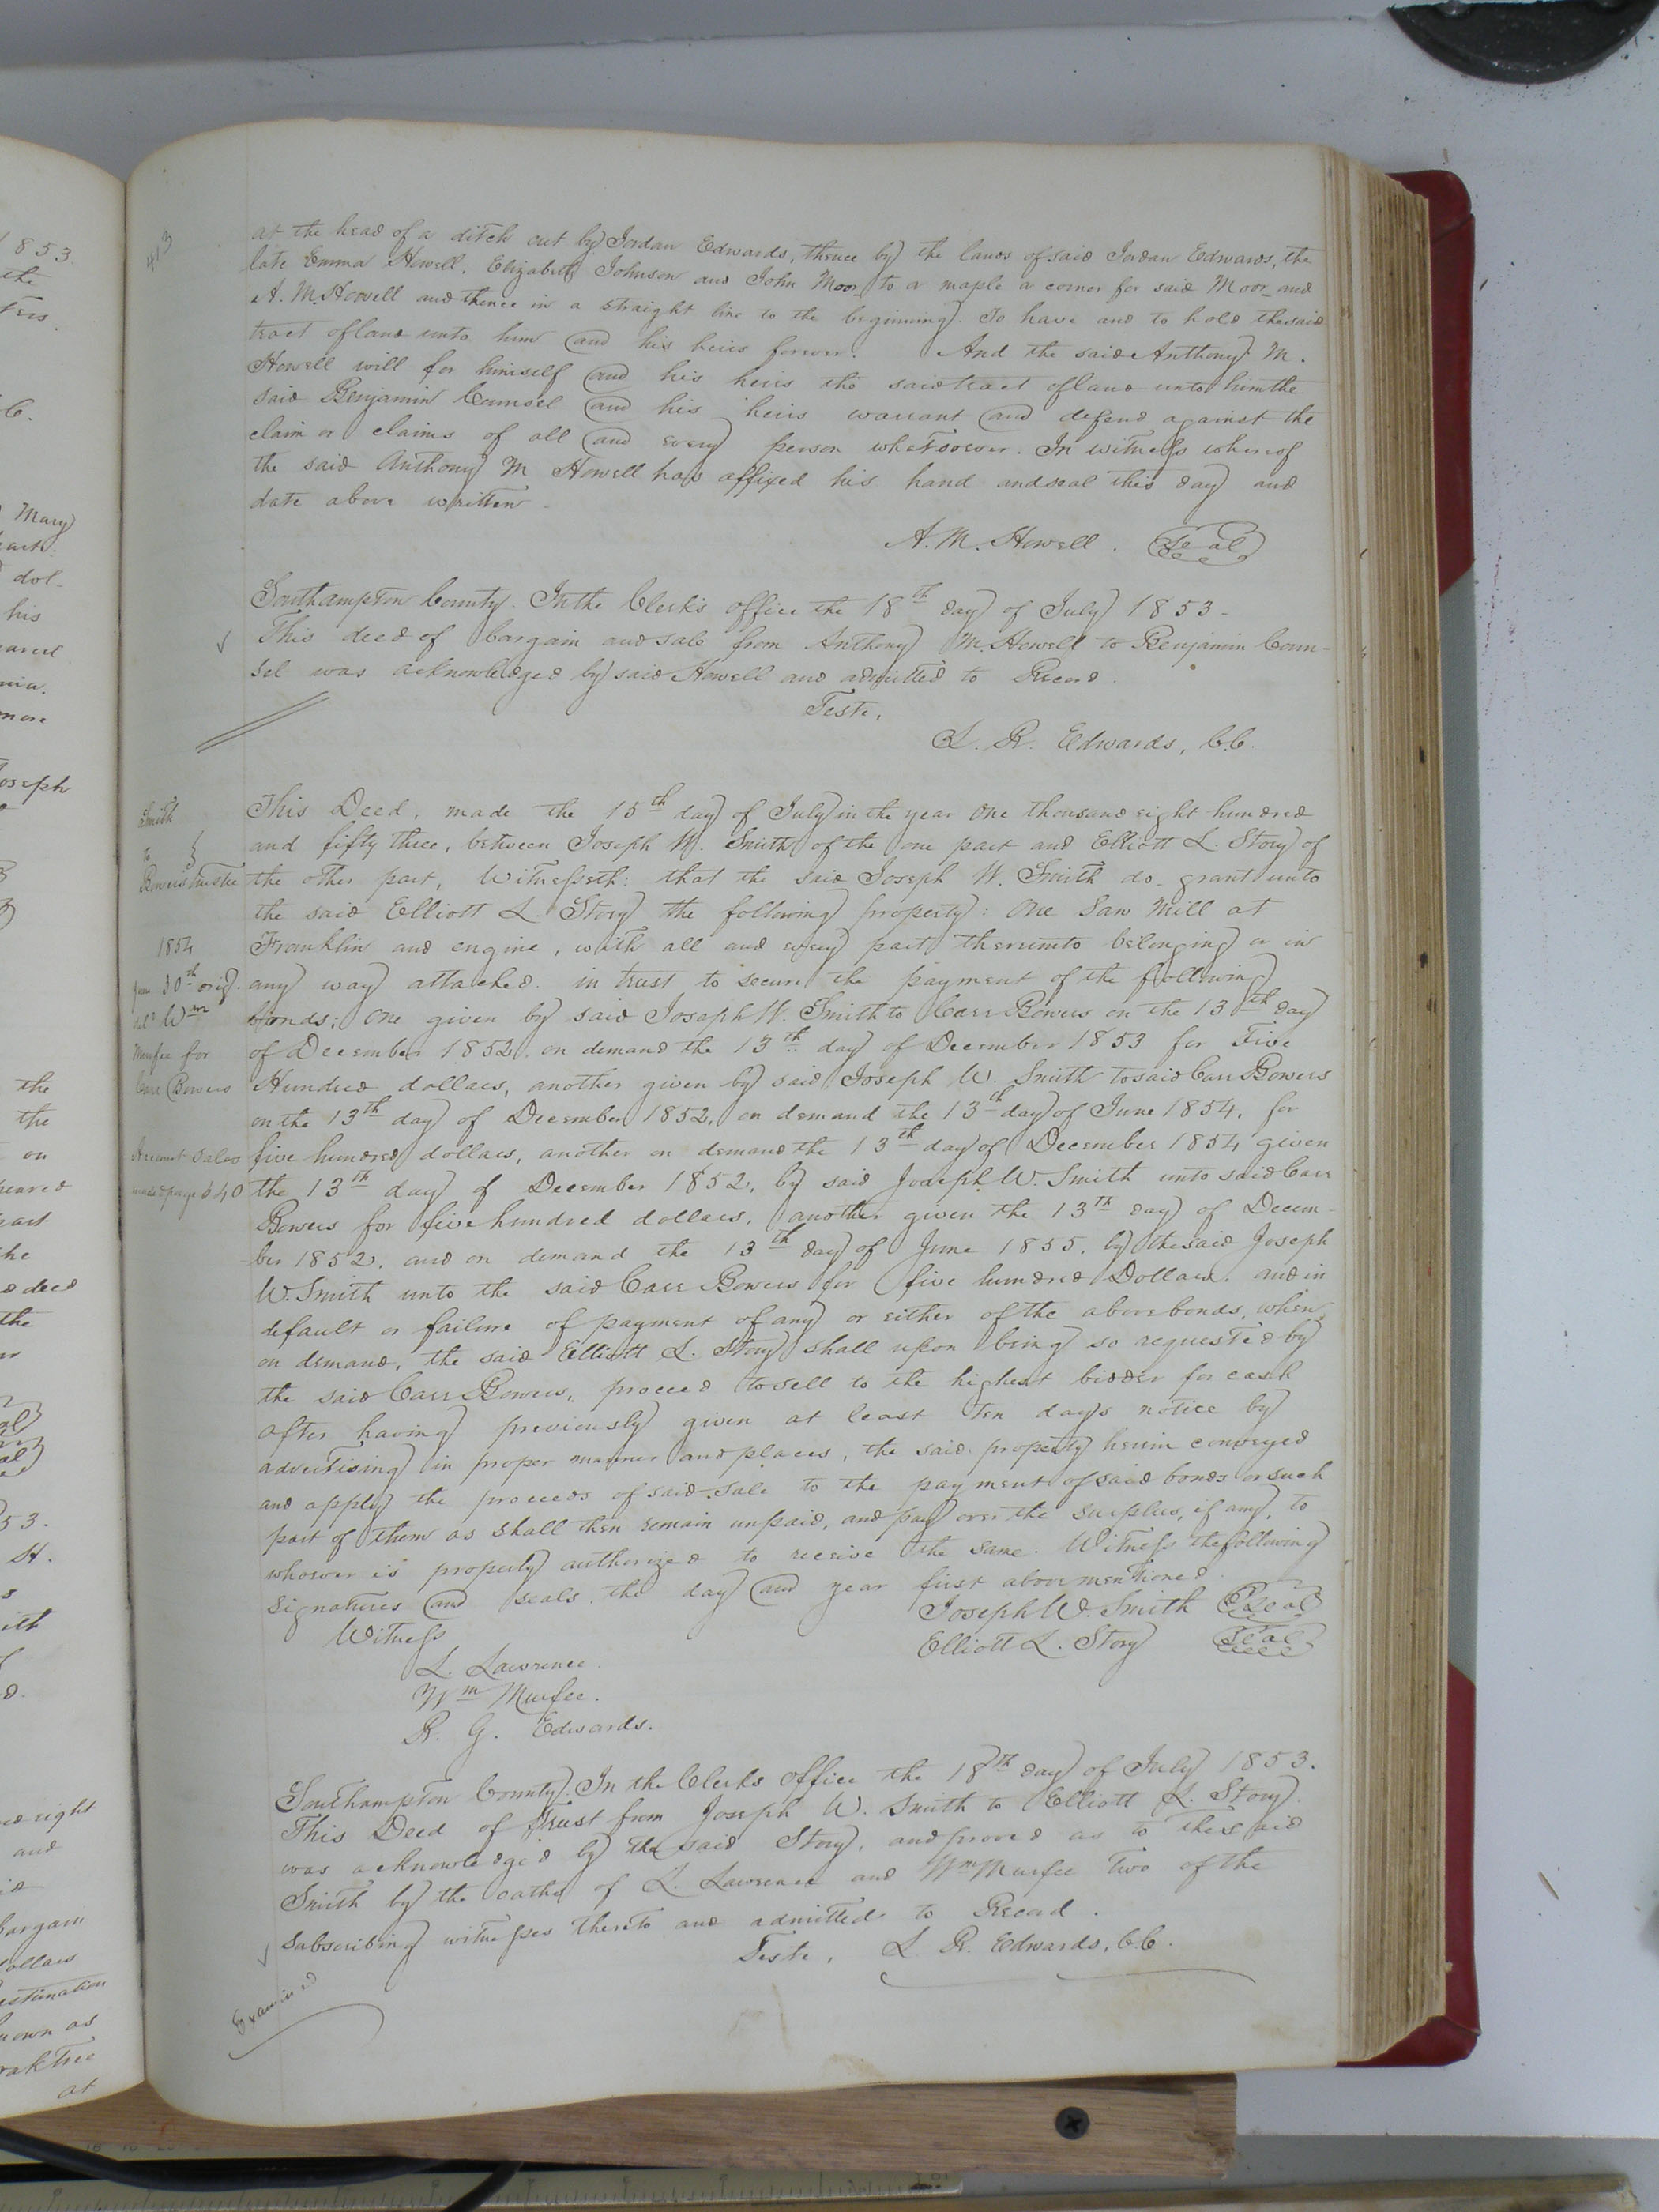 413
at the head of a ditch cut by Jordan Edwards, thence by the lands of said Jordan Edwards, the
late Emma Howell, Elizabeth Johnson and John Moor_ to a maple a corner for said Moor_ and
A. M. Howell and thence in a straight line to the beginning. To have and to hold the said
tract of land unto him and his heirs forever. And the said Anthony M.
Howell will for himself and his heirs the said tract of land unto him the
said Benjamin Counsel and his heirs warrant and defend against the
claim or claims of all and every person whatsoever. In witness whereof
the said Anthony M Howell has affixed his hand and seal this day and
date above written
A. M. Howell. Seal
Southampton County. In the Clerk's office the 18th day of July 1853 -
This deed of bargain and sale from Anthony M. Howell to Benjamin Coun-
sel was acknowledged by said Howell and admitted to Record.
Teste,
L. R. Edwards, C.C.
Smith
to
Bowers trustee
1854
30th orig.
del'd Wm
Murfee for
Carr Bowers
Account Sales
page 640
This Deed, made the 15th day of July in the year One thousand eight hundred
and fifty three, between Joseph W. Smith of the one part and Elliott L. Story of
the other part, Witnesseth: that the said Joseph W. Smith do_ grant unto
the said Elliott L. Story the following property: One Saw Mill at
Franklin and engine, with all and every part thereunto belonging or in
any way attached. in trust to secure the payment of the following
bonds: One given by said Joseph W. Smith to Carr Bowers on the 13th day
of December 1852. on demand the 13th day of December 1853 for Five
Hundred dollars, another given by said Joseph W. Smith to said Carr Bowers
on the 13th day of December 1852, on demand the 13th day of June 1854, for
five hundred dollars, another on demand the 13th day of December 1854 given
the 13th day of December 1852, by said Joseph W. Smith unto said Carr
Bowers for five hundred dollars, another given the 13th day of Decem-
ber 1852. and on demand the 13th day of June 1855. by the said Joseph
W. Smith unto the said Carr Bowers for five hundred Dollars. and in
default or failure of payment of any or either of the above bonds, when
on demand, the said Elliott L. Story shall upon being so requested by
the said Carr Bowers, proceed to sell to the highest bidder for cash
after having previously given at least Ten days notice by
advertising in proper manner and places, the said property herein conveyed
and apply the proceeds of said sale to the payment of said bonds or such
part of them as shall then remain unpaid, and pay over the surplus, if any, to
whoever is properly authorized to receive the same. Witness the following
signatures and seals. the day and year first above mentioned.
Witness
Joseph W. Smith Seal
Elliott L. Story Seal
L. Lawrence.
Wm Murfee.
R. G. Edwards.
Southampton County. In the Clerks office the 18th day of July 1853.
This Deed of Trust from Joseph W. Smith to Elliott L. Story
was acknowledged by the said Story, and proved as to the said
Smith by the oaths of L. Lawrence and Wm Murfee two of the
subscribing witnesses thereto and admitted to Record.
Teste, L. R. Edwards, C.C.
Examined